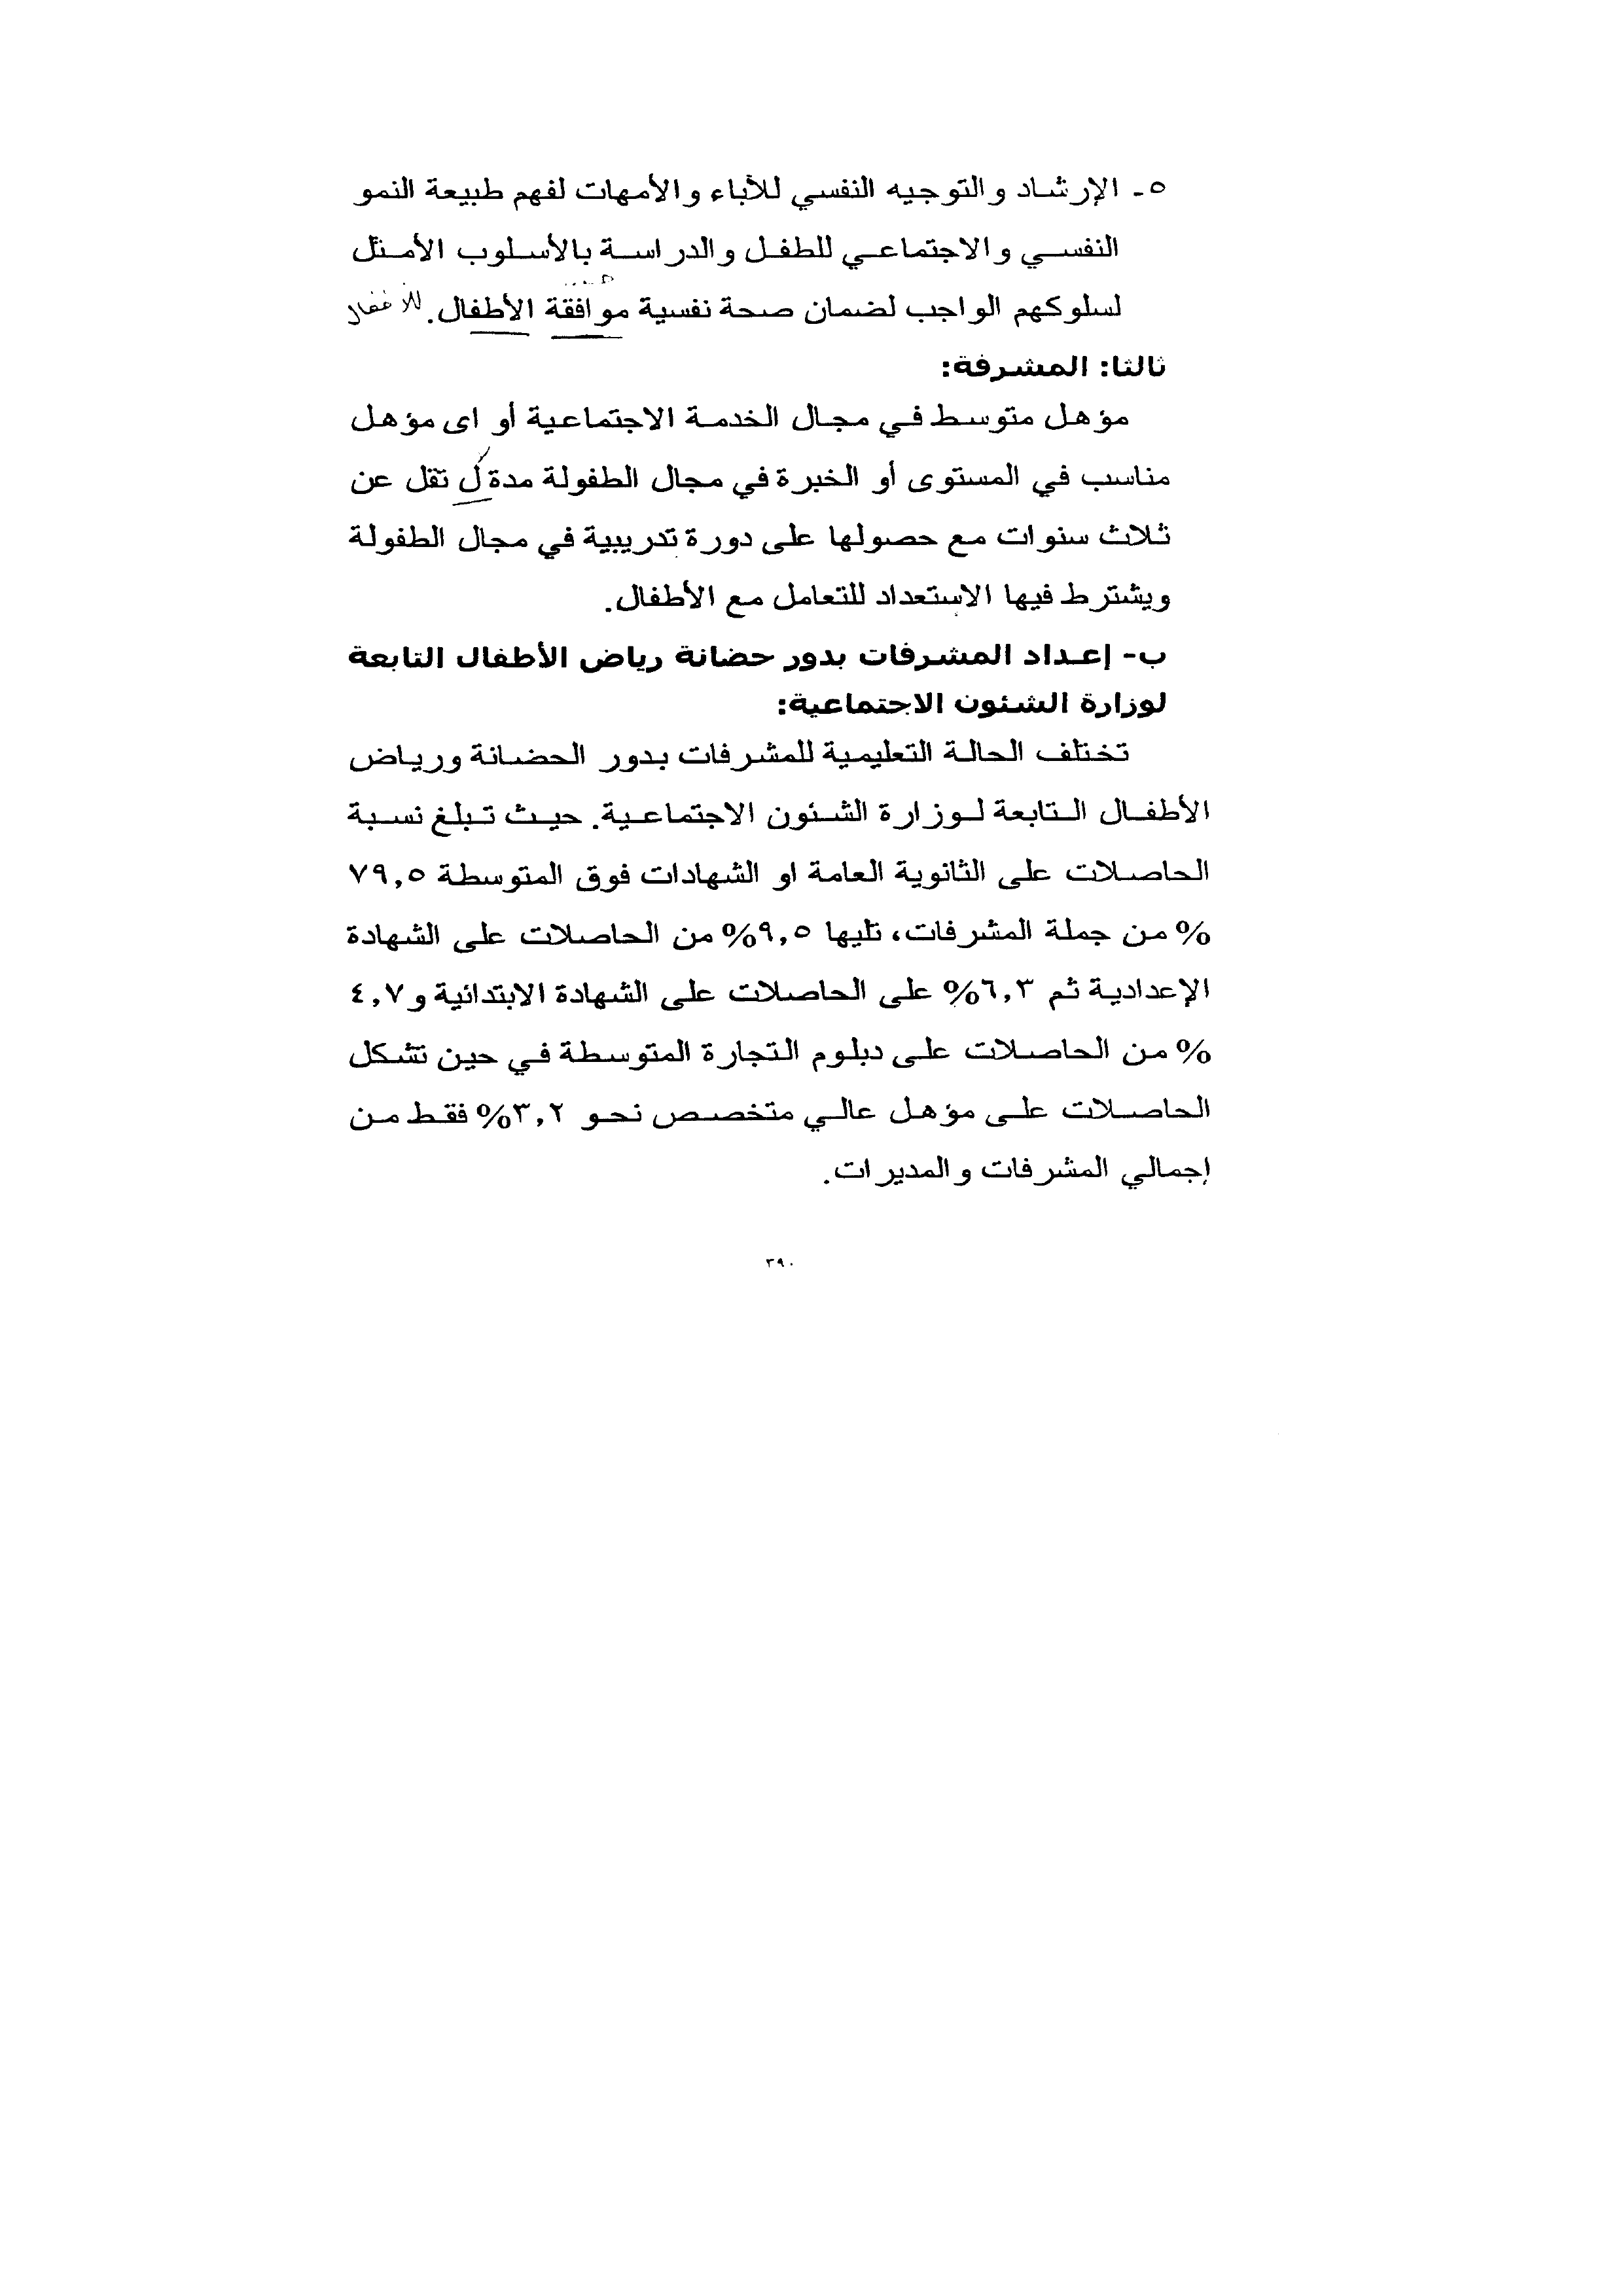 ٥- الإرشاد والتوجيه النفسي للأباء والأمهات لفهم طبيعة النمو
النفسي والاجتماعي للطفل والدراسة بالأسلوب الأمثل
لسلوكهم الواجب لضمان صحة نفسية موافقة الأطفال. للأطفال
ثالثا: المشرفة:
مؤهل متوسط في مجال الخدمة الاجتماعية أو اى مؤهل
مناسب في المستوى أو الخبرة في مجال الطفولة مدة ل تقل عن
ثلاث سنوات مع حصولها على دورة تدريبية في مجال الطفولة
ويشترط فيها الاستعداد للتعامل مع الأطفال.
ب- إعداد المشرفات بدور حضانة رياض الأطفال التابعة
لوزارة الشئون الاجتماعية:
تختلف الحالة التعليمية للمشرفات بدور الحضانة ورياض
الأطفال التابعة لوزارة الشئون الاجتماعية. حيث تبلغ نسبة
الحاصلات على الثانوية العامة او الشهادات فوق المتوسطة ٧٩,٥
% من جملة المشرفات، تليها ٩,٥% من الحاصلات على الشهادة
الإعدادية ثم ٦,٣% على الحاصلات على الشهادة الابتدائية و٤,٧
% من الحاصلات على دبلوم التجارة المتوسطة في حين تشكل
الحاصلات على مؤهل عالي متخصص نحو ٣,٢% فقط من
إجمالي المشرفات والمديرات.
٣٩٠